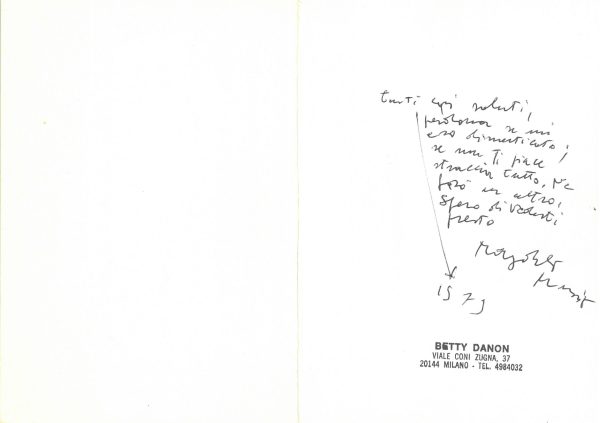 tanti cari saluti,
perdona se mi
ero dimenticato;
se non ti piace
straccia tutto, ne
farò un altro,
spero di vederti
presto
1979
BETTY DANON
VIALE CONI ZUGNA, 37
20144 MILANO - TEL. 4984032